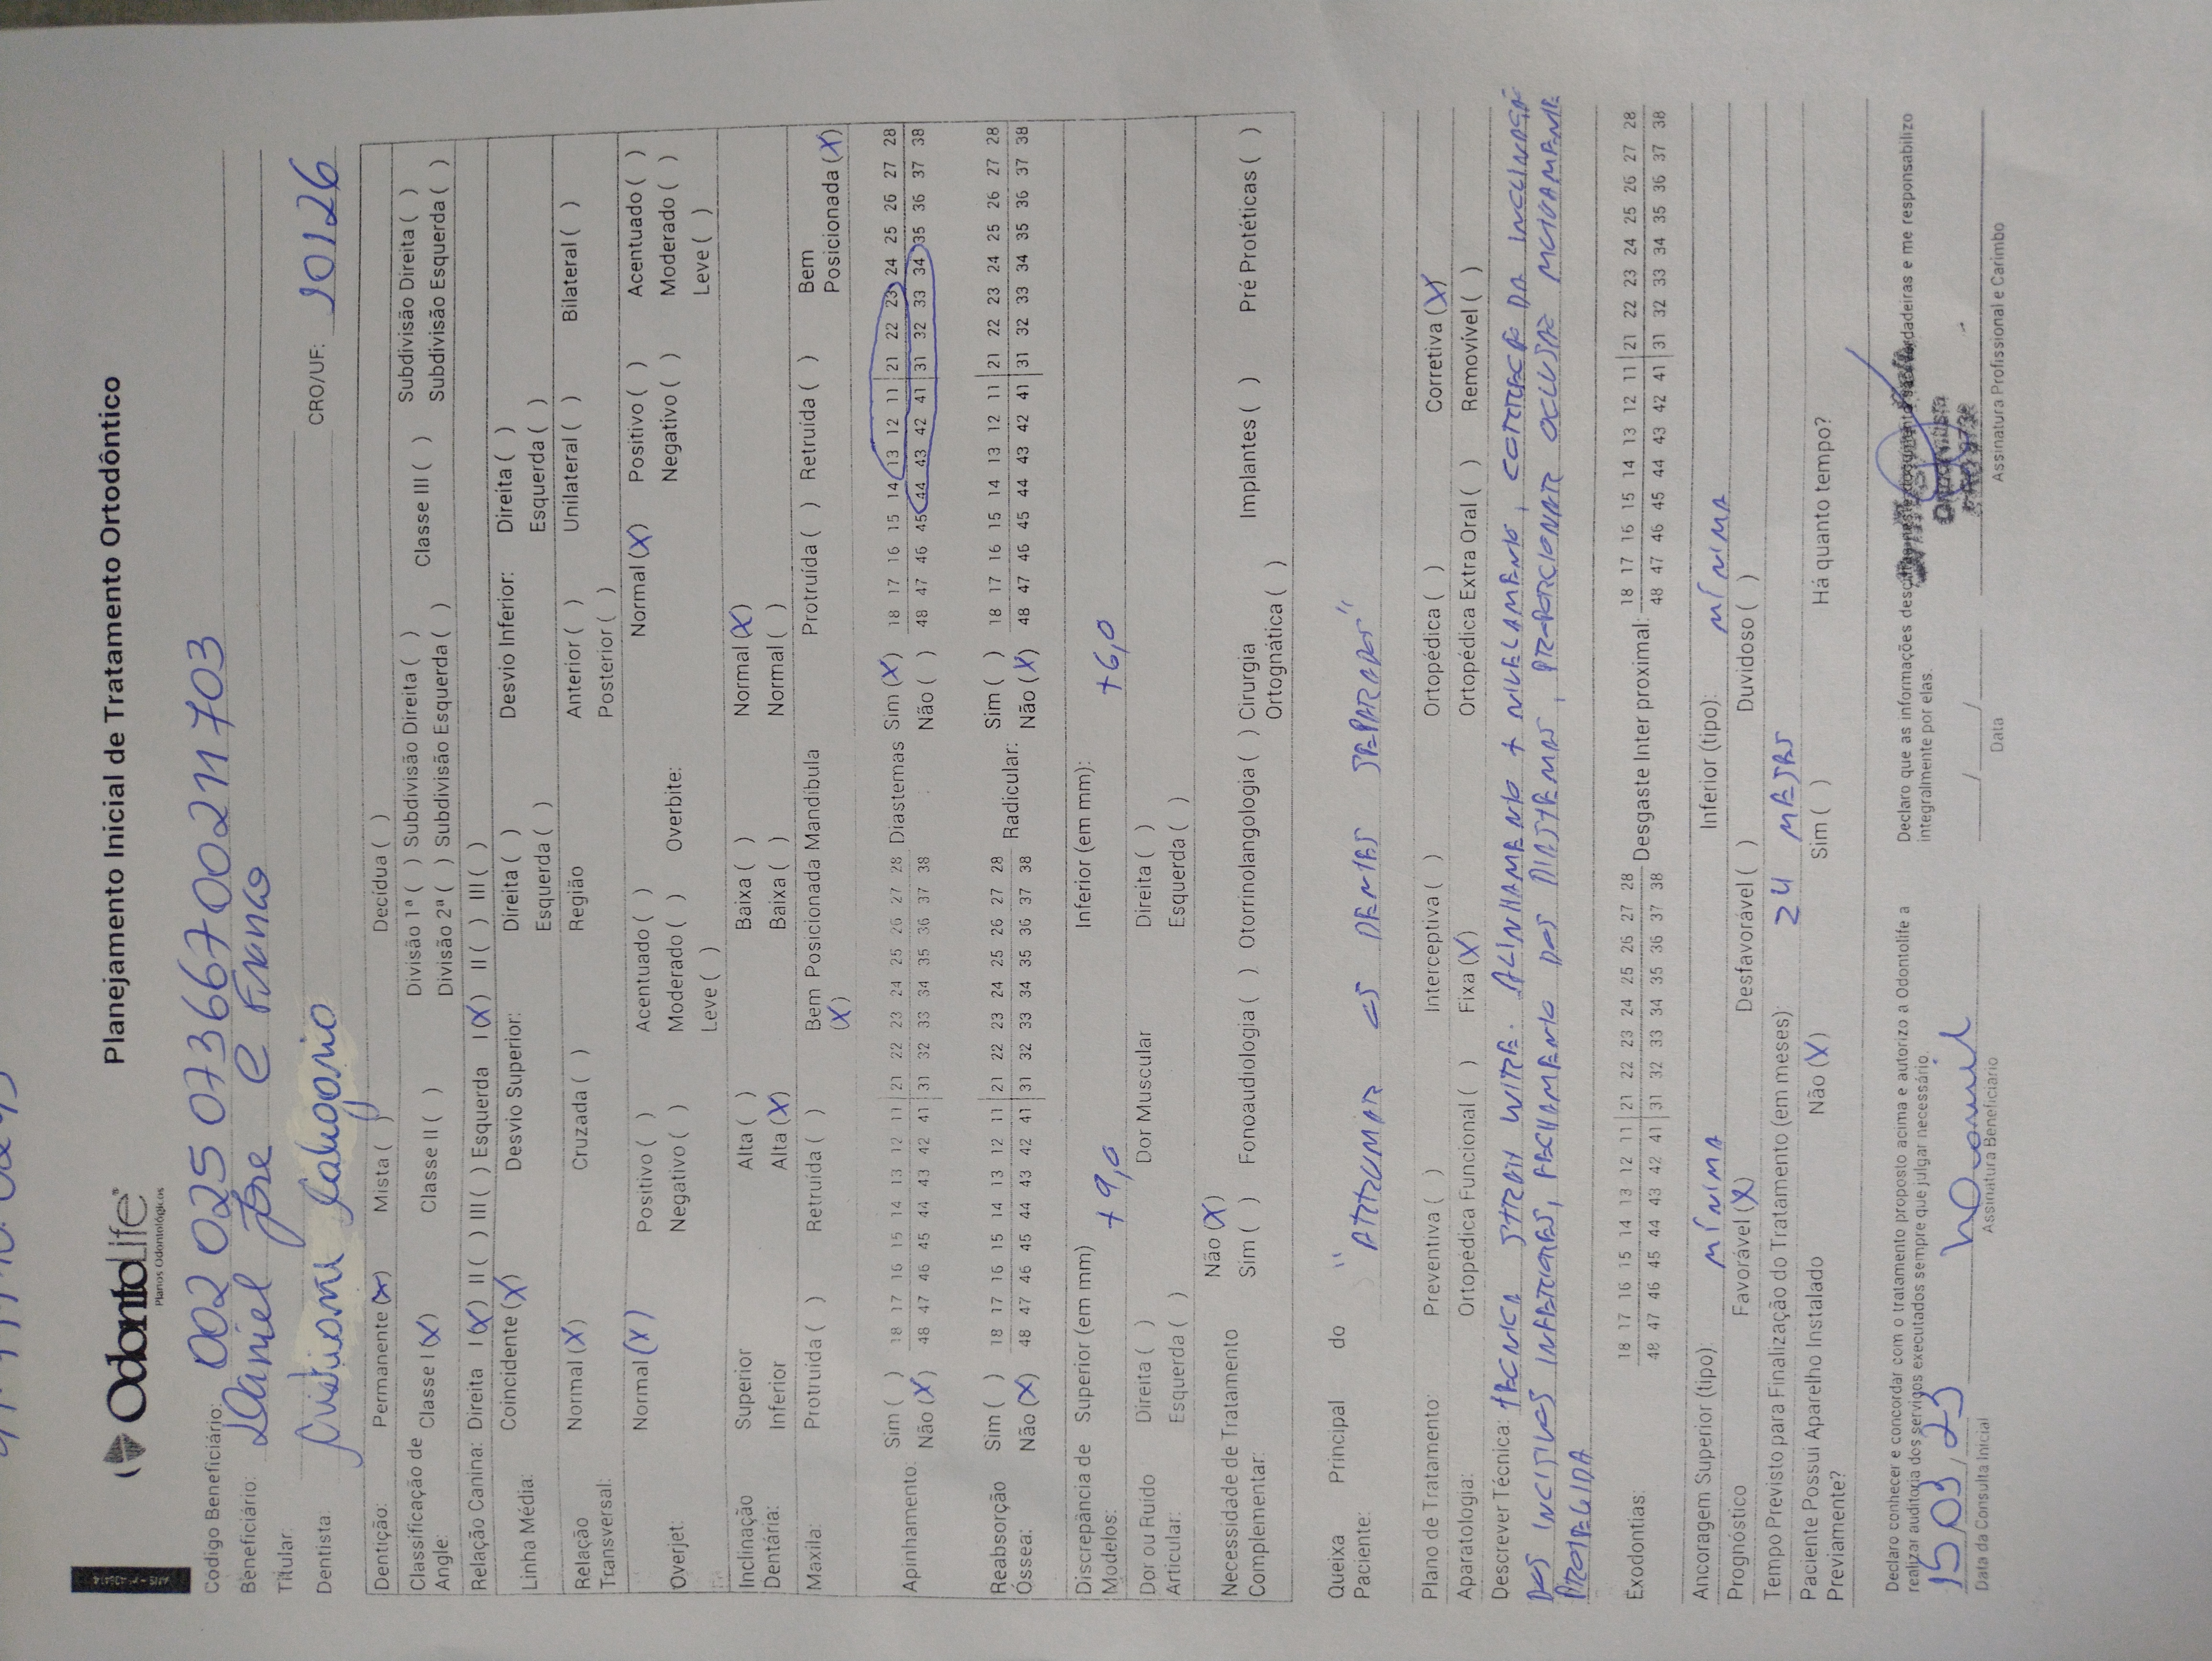 OdontoLife
Planos Odontológicos
Planejamento Inicial de Tratamento Ortodôntico
Código Beneficiário: 002 025 073667 00211703
Beneficiário: Daniel Jose e Franco
Titular:
Dentista: CRO/UF: 20126
Dentição: Permanente (X) Mista ( ) Decídua ( )
Classificação de Angle: Classe I (X) Classe II ( ) Divisão 1ª ( ) Subdivisão Direita ( ) Classe III ( ) Subdivisão Direita ( )
Divisão 2ª ( ) Subdivisão Esquerda ( ) Subdivisão Esquerda ( )
Relação Canina: Direita I (X) II ( ) III ( ) Esquerda I (X) II ( ) III ( )
Linha Média: Coincidente (X) Desvio Superior: Direita ( ) Desvio Inferior: Direita ( )
Esquerda ( ) Esquerda ( )
Relação Transversal: Normal (X) Cruzada ( ) Região Anterior ( ) Unilateral ( ) Bilateral ( )
Posterior ( )
Overjet: Normal (X) Positivo ( ) Acentuado ( ) Overbite: Normal (X) Positivo ( ) Acentuado ( )
Negativo ( ) Moderado ( ) Negativo ( ) Moderado ( )
Leve ( ) Leve ( )
Inclinação Dentária: Superior Alta ( ) Baixa ( ) Normal (X)
Inferior Alta (X) Baixa ( ) Normal ( )
Maxila: Protruída ( ) Retruída ( ) Bem Posicionada (X) Mandíbula Protruída ( ) Retruída ( ) Bem Posicionada (X)
Apinhamento: Sim ( ) 18 17 16 15 14 13 12 11 | 21 22 23 24 25 26 27 28 Diastemas Sim (X) 18 17 16 15 14 13 12 11 | 21 22 23 24 25 26 27 28
Não (X) 48 47 46 45 44 43 42 41 | 31 32 33 34 35 36 37 38 Não ( ) 48 47 46 45 44 43 42 41 | 31 32 33 34 35 36 37 38
Reabsorção Óssea: Sim ( ) 18 17 16 15 14 13 12 11 | 21 22 23 24 25 26 27 28 Radicular: Sim ( ) 18 17 16 15 14 13 12 11 | 21 22 23 24 25 26 27 28
Não (X) 48 47 46 45 44 43 42 41 | 31 32 33 34 35 36 37 38 Não (X) 48 47 46 45 44 43 42 41 | 31 32 33 34 35 36 37 38
Discrepância de Modelos: Superior (em mm) +9,0 Inferior (em mm): +6,0
Dor ou Ruído Articular: Direita ( ) Dor Muscular Direita ( )
Esquerda ( ) Esquerda ( )
Necessidade de Tratamento Complementar: Não (X)
Sim ( ) Fonoaudiologia ( ) Otorrinolangologia ( ) Cirurgia Ortognática ( ) Implantes ( ) Pré Protéticas ( )
Queixa Principal do Paciente: "ARRUMAR OS DENTES SEPARADOS"
Plano de Tratamento: Preventiva ( ) Interceptiva ( ) Ortopédica ( ) Corretiva (X)
Aparatologia: Ortopédica Funcional ( ) Fixa (X) Ortopédica Extra Oral ( ) Removível ( )
Descrever Técnica: TÉCNICA STRAIGH WIRE. ALINHAMENTO + NIVELAMENTO, CORREÇÃO DA INCLINAÇÃO
DOS INCISIVOS INFERIORES, FECHAMENTO DOS DIASTEMAS, PROPORCIONAR OCLUSÃO MUTUAMENTE
PROTEGIDA
Exodontias: 18 17 16 15 14 13 12 11 | 21 22 23 24 25 26 27 28 Desgaste Inter proximal: 18 17 16 15 14 13 12 11 | 21 22 23 24 25 26 27 28
48 47 46 45 44 43 42 41 | 31 32 33 34 35 36 37 38 48 47 46 45 44 43 42 41 | 31 32 33 34 35 36 37 38
Ancoragem Superior (tipo): MÍNIMA Inferior (tipo): MÍNIMA
Prognóstico Favorável (X) Desfavorável ( ) Duvidoso ( )
Tempo Previsto para Finalização do Tratamento (em meses): 24 MESES
Paciente Possui Aparelho Instalado Previamente? Não (X) Sim ( ) Há quanto tempo?
Declaro conhecer e concordar com o tratamento proposto acima e autorizo a Odontolife a
realizar auditoria dos serviços executados sempre que julgar necessário.
Declaro que as informações verdadeiras e me responsabilizo
integralmente por elas.
15,03,23
Data da Consulta Inicial
Assinatura Beneficiário
Data
Assinatura Profissional e Carimbo